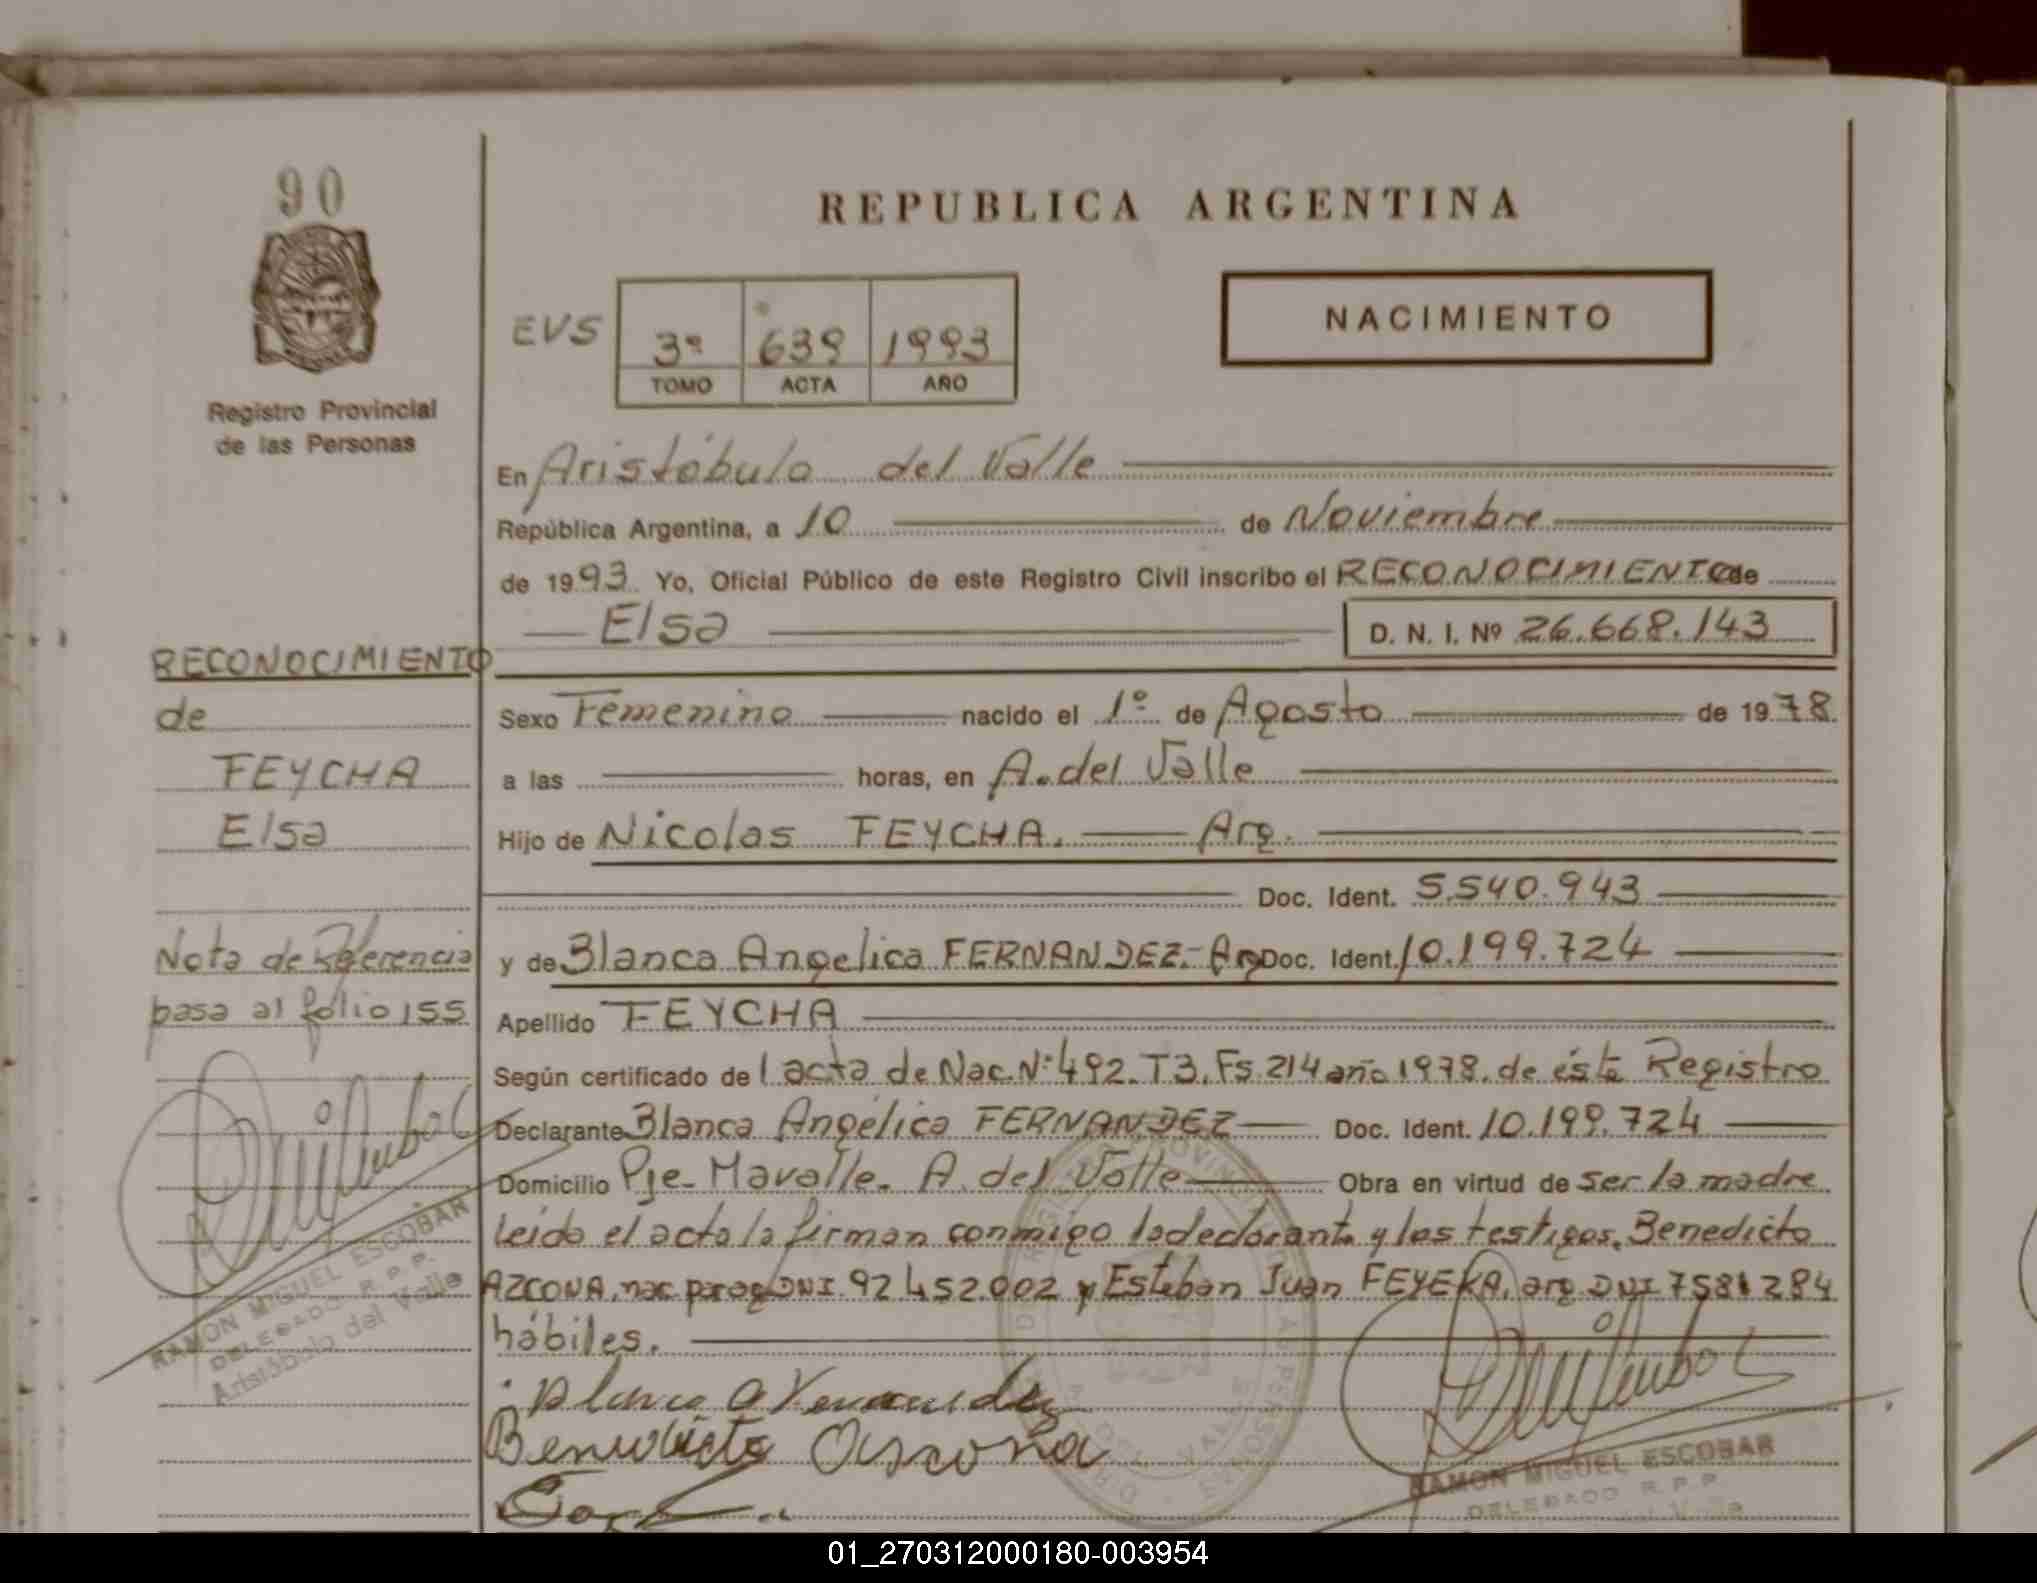 90
REPUBLICA ARGENTINA
NACIMIENTO
EVS
3º 639 1993
TOMO ACTA AÑO
Registro Provincial
de las Personas
En Aristóbulo del Valle
República Argentina, a 10 de Noviembre
de 1993 Yo, Oficial Público de este Registro Civil inscribo el RECONOCIMIENTO de
Elsa D. N. I. Nº 26.668.143
RECONOCIMIENTO
de
FEYCHA
Elsa
Sexo Femenino nacido el 1º de Agosto de 1978
a las horas, en A. del Valle
Hijo de Nicolas FEYCHA. Arg.
Doc. Ident. 5.540.943
y de Blanca Angelica FERNANDEZ - Arg Doc. Ident. 10.199.724
Nota de Referencia
pasa al folio 155
Apellido FEYCHA
Según certificado del acta de Nac. Nº 492. T3. Fs. 214 año 1978. de ésta Registro
Declarante Blanca Angélica FERNANDEZ Doc. Ident. 10.199.724
Domicilio Pje- Mavalle. A. del Valle Obra en virtud de ser la madre
Leída el acta la firman conmigo la declarante y los testigos. Benedicto
AZCONA. nac. parag DNI. 92 452.002 y Esteban Juan FEYEKA. arg DNI 7581284
hábiles.
Blanca A Fernandez
Benedicto Ascona
RAMON MIGUEL ESCOBAR
DELEGADO R.P.P.
Aristóbulo del Valle
RAMON MIGUEL ESCOBAR
DELEGADO R.P.P.
del Valle
01_270312000180-003954